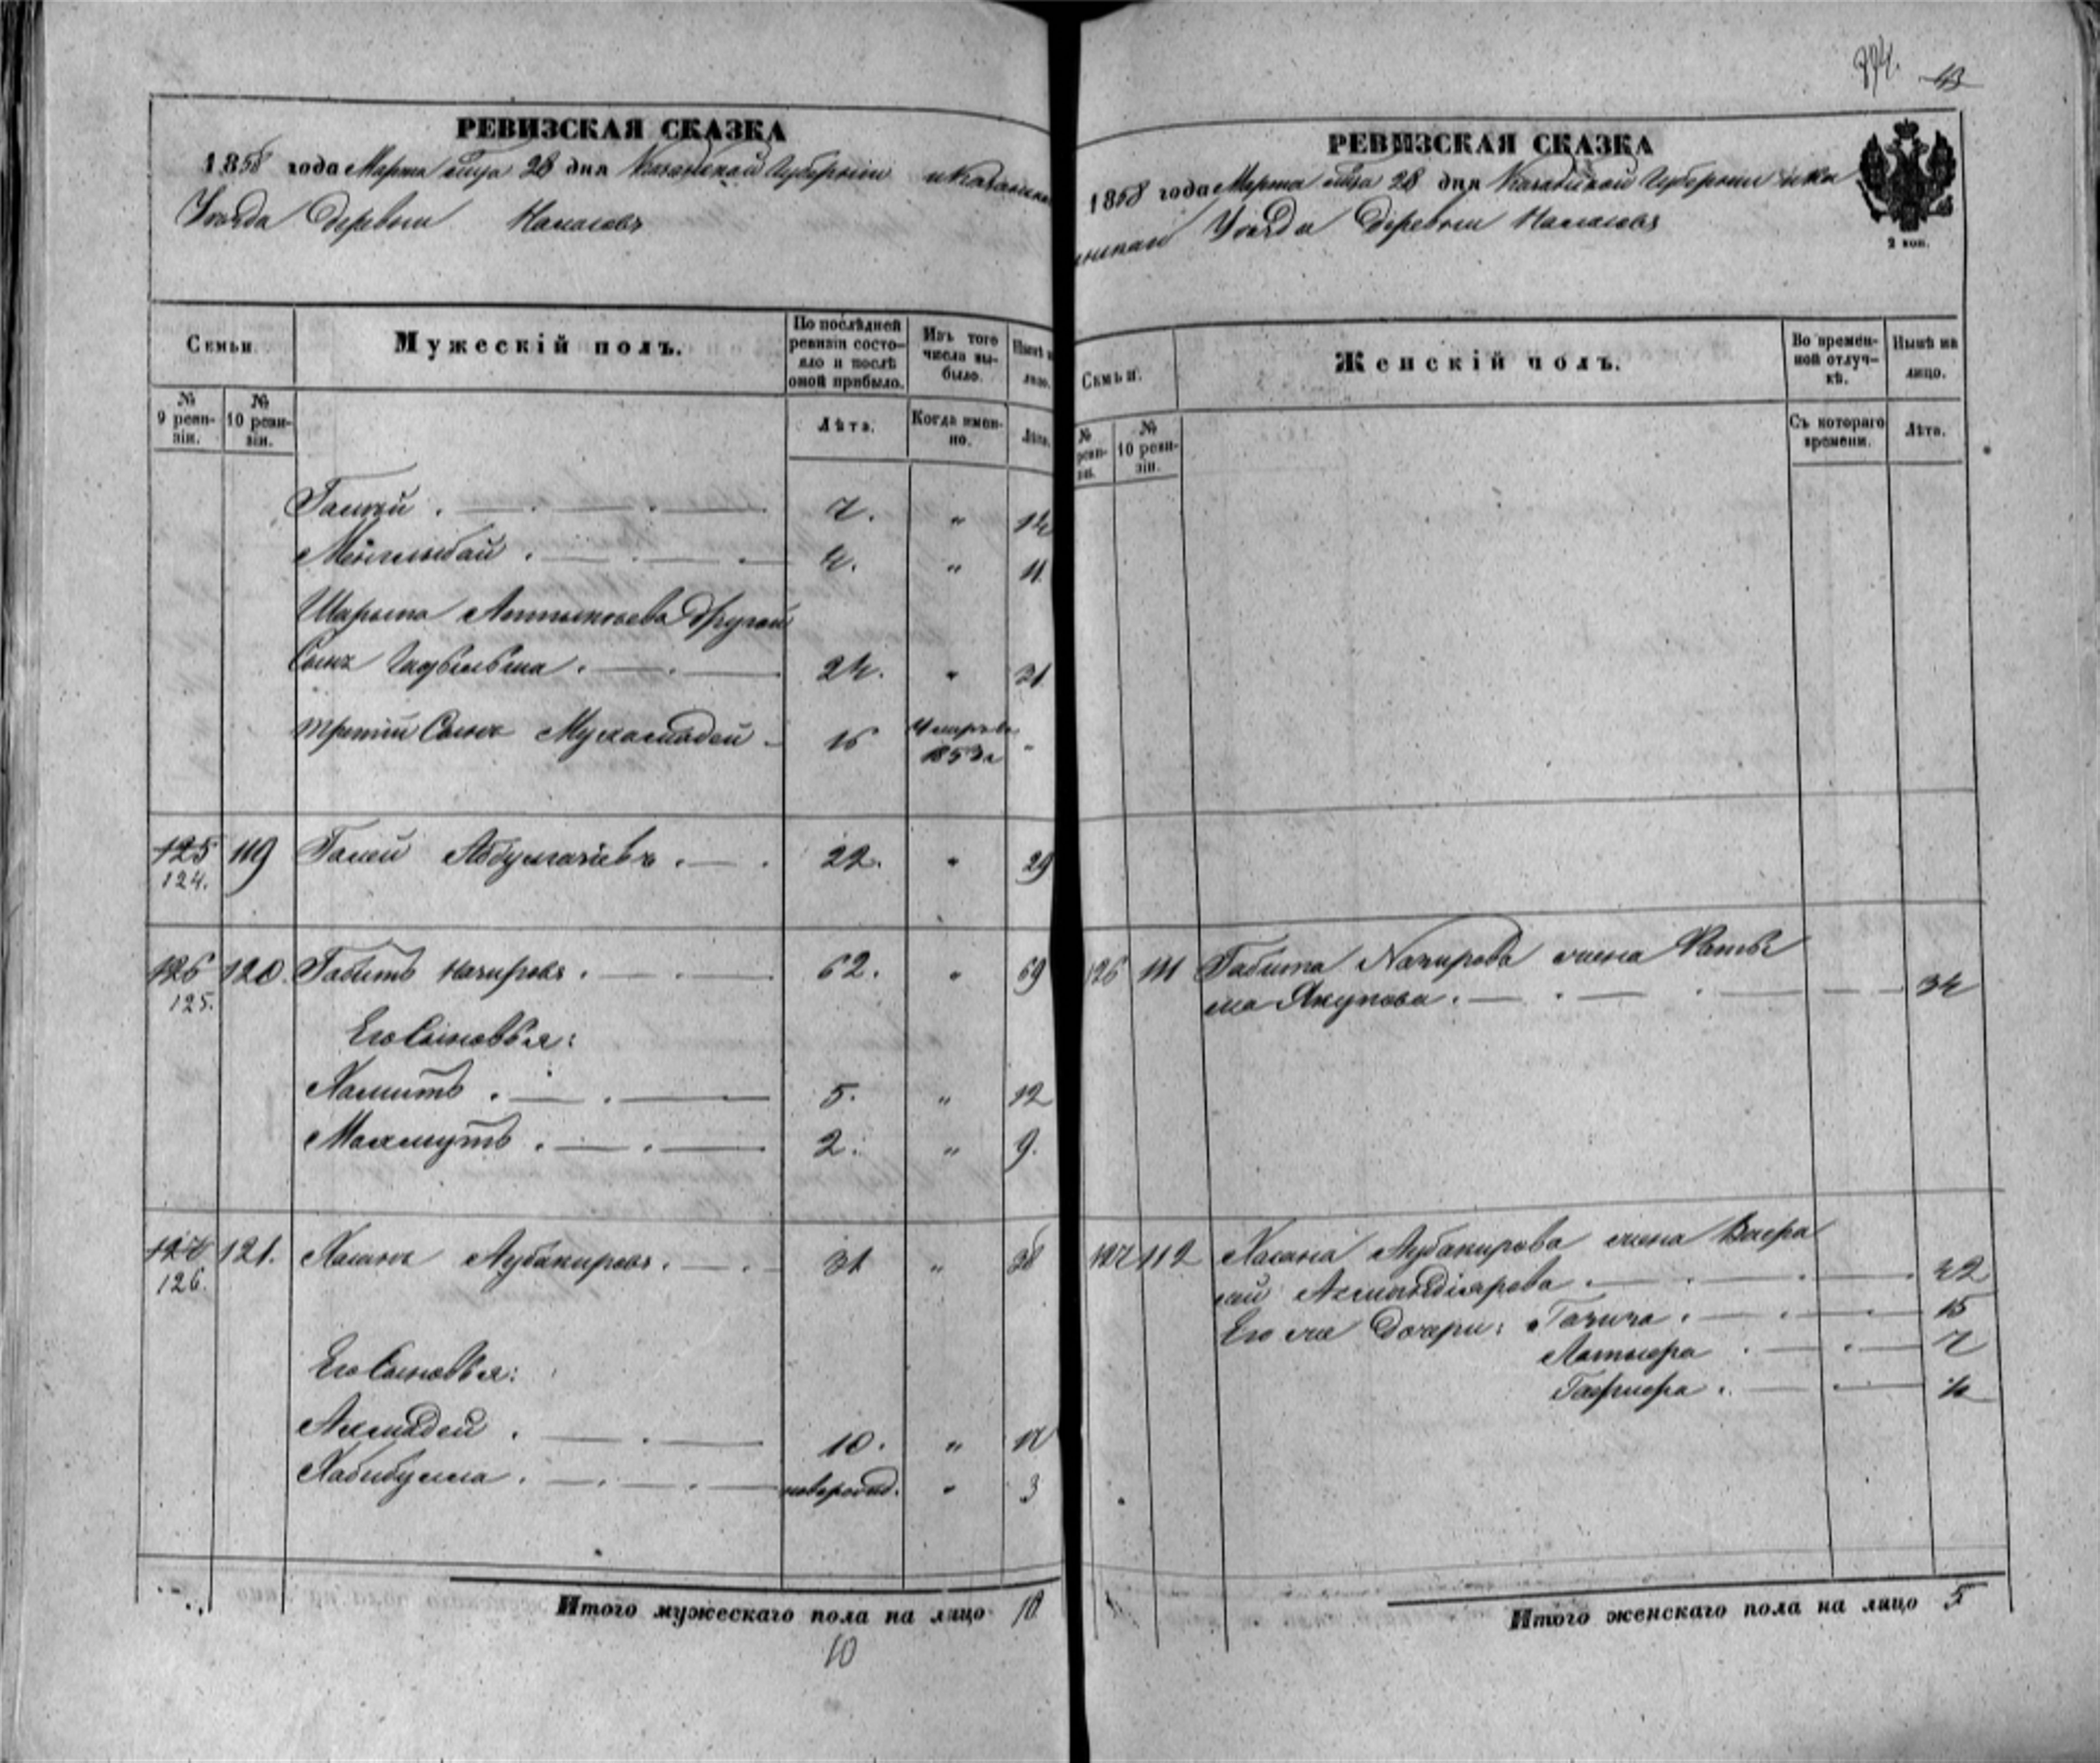 РЕВИЗСКАЯ СКАЗКА
1858 года Марта 28 дня Казанской Губернии и Казанскаго
Уезда деревни
Семьи.
Мужескій полъ.
По послѣдней ревизіи состояло и послѣ оной прибыло.
Изъ того числа выбыло.
Нынѣ на лицо.
№ 9 ревизіи.
№ 10 ревизіи.
Лѣта.
Когда именно.
Лѣта.
7. " 14
4. " 11
другой
Сынъ 24. " 31
третий Сынъ Мухамадей 16 Умеръ въ
1853 г "
125 119 Галей 22. " 29
124.
126 120. Габитъ Назировъ 62. " 69
125.
Его Сыновья:
Хамитъ 5. " 12
Махмутъ 2. " 9.
127 121. Хасанъ Аубакировъ 31 " 38
126.
Его Сыновья:
Ахмадей 10. " 17
Хабибулла новорожд. " 3
Итого мужескаго пола на лицо 10
10
774.
43
РЕВИЗСКАЯ СКАЗКА
1858 года Марта 28 дня Казанской Губернии и Ка
Уезда деревни
2 коп.
Семьи.
Женскій полъ.
Во временной отлучкѣ.
Нынѣ на лицо.
№ ревизіи.
№ 10 ревизіи.
Съ котораго времени.
Лѣта.
126 111 Габита Назирова жена Фать
ма Якупова 34
127 112 Хасана Аубакирова жена
22
Его же дочери: Газиза 15
7
4
Итого женскаго пола на лицо 5